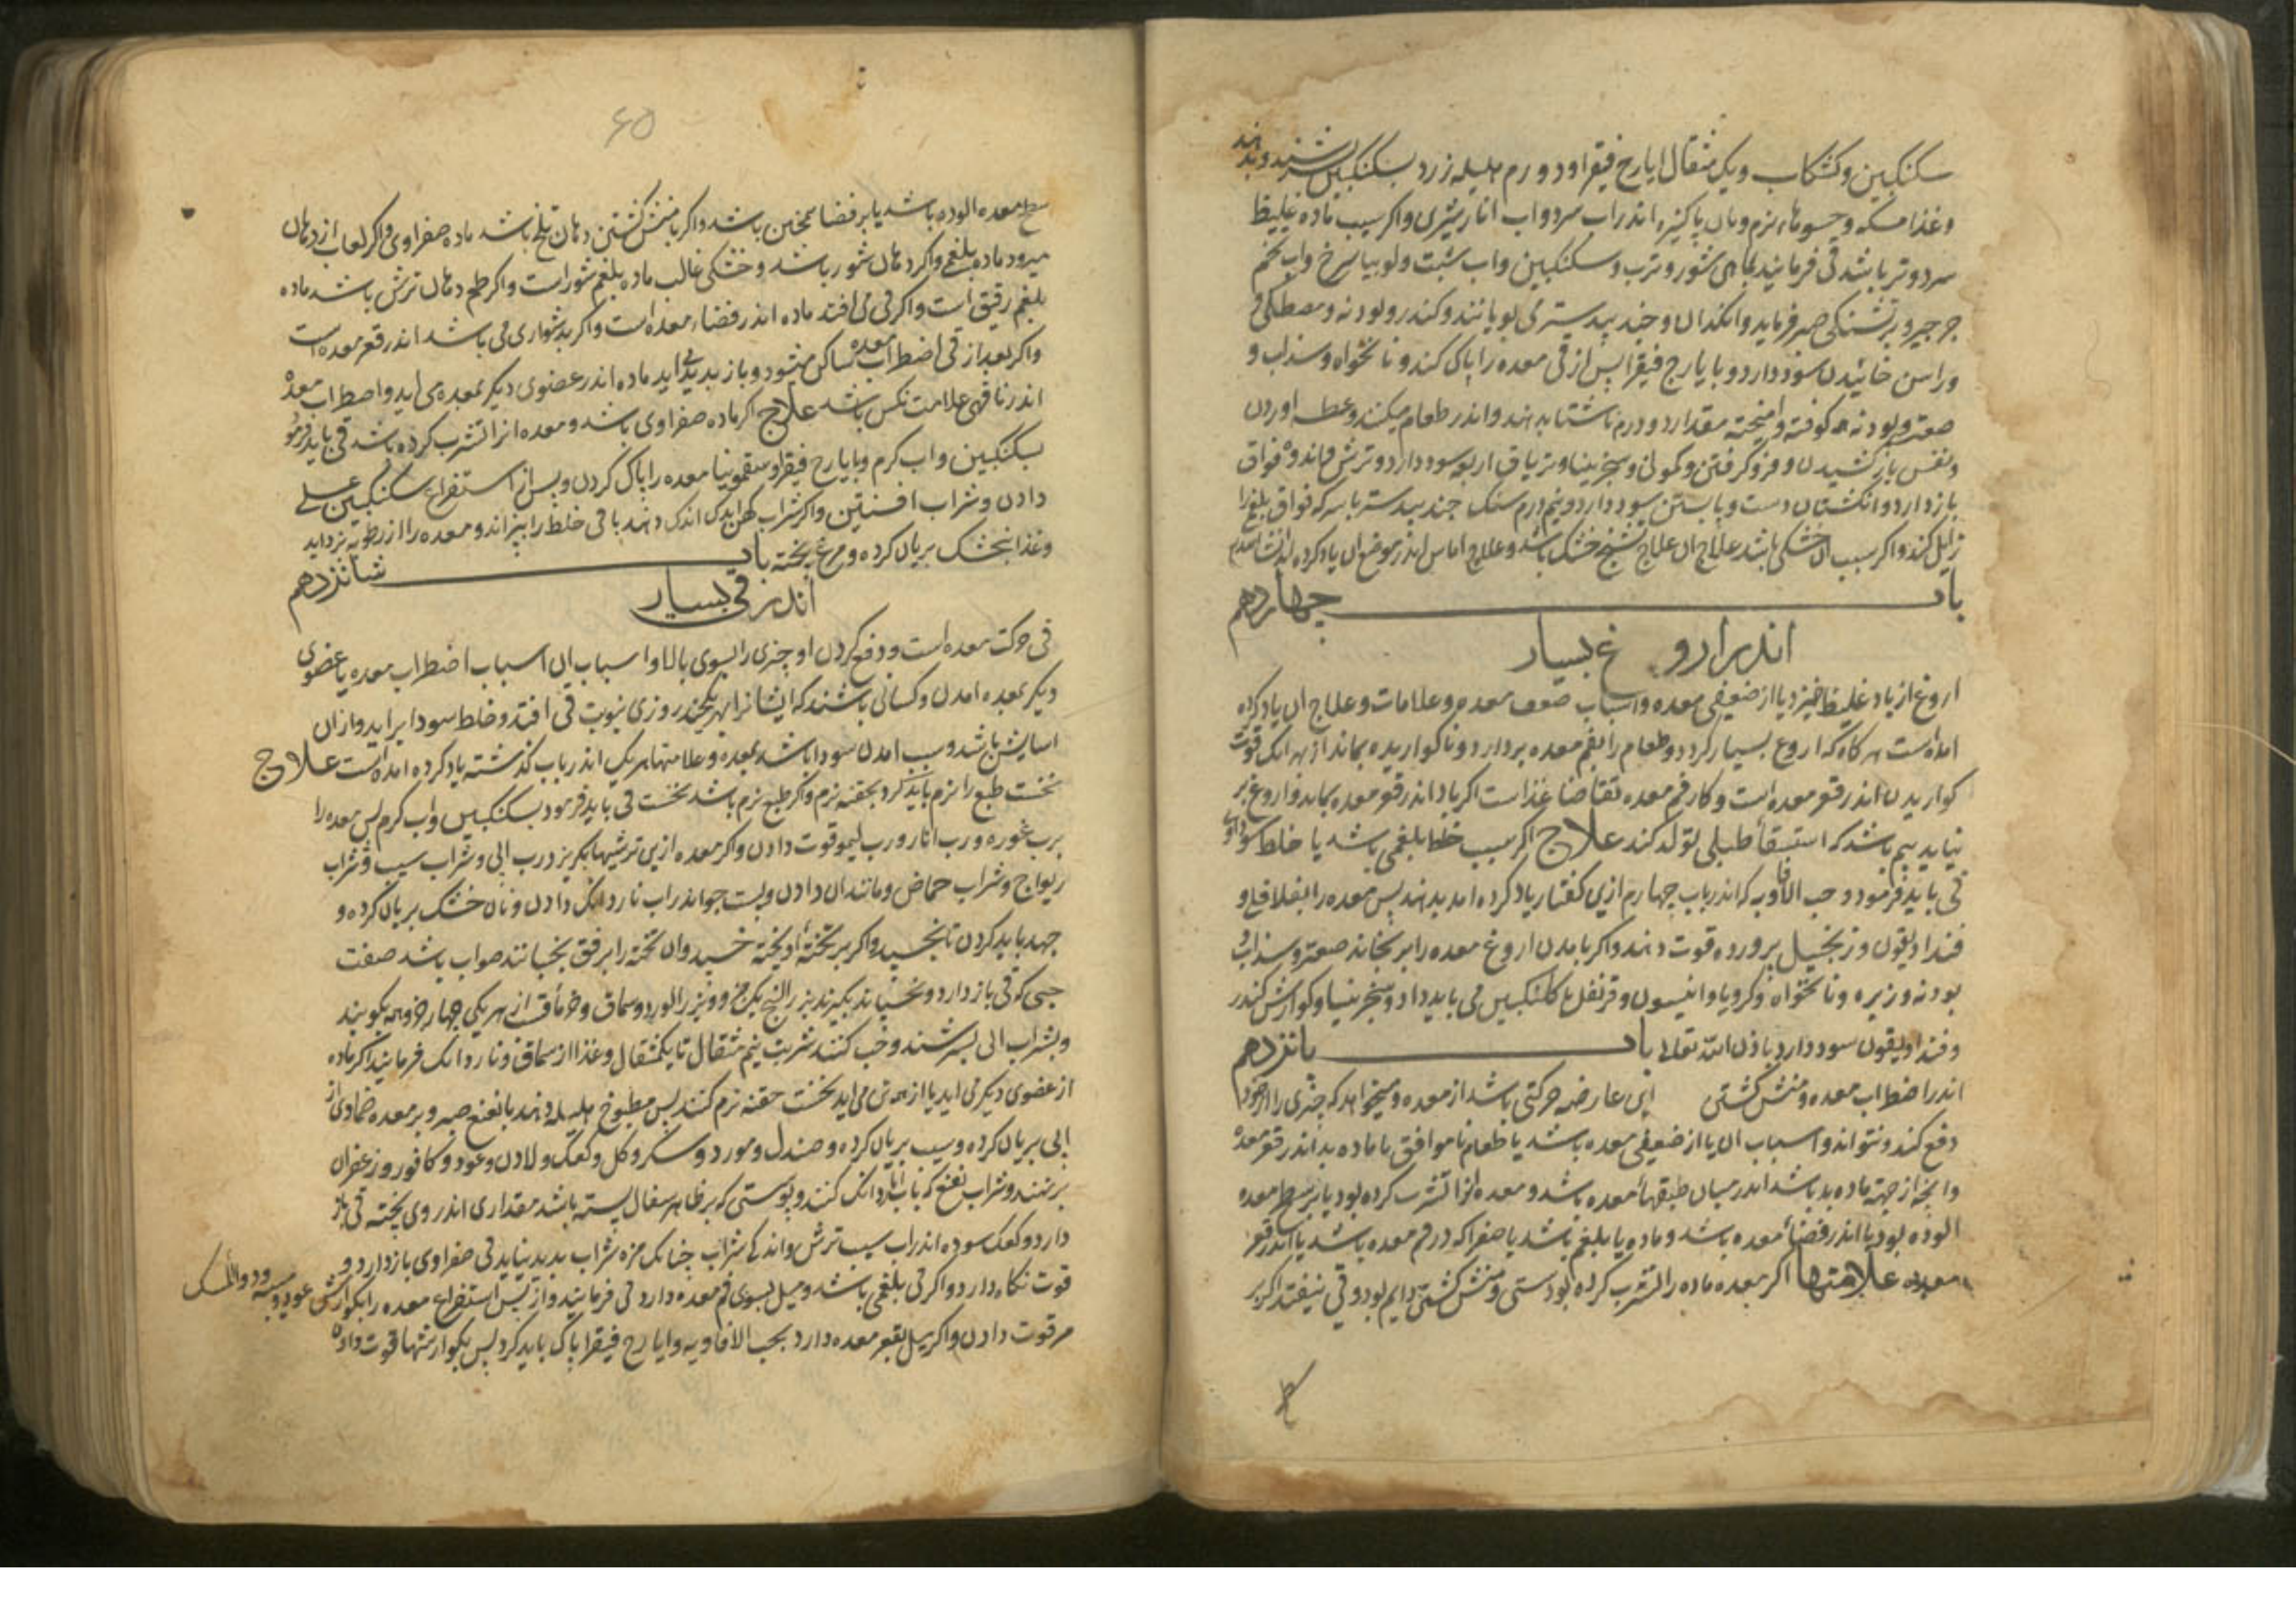 سکنکبین و کشکاب و یک مثقال ایارح فیقرا و دو درم هلیله زرد بسکنکبین بسرشند و بدهند
وغذا مسکه و حسوهاء نرم و نان پاکیزه اندر اب سرد و اب انار میثری و اکر سبب ماده غلیظ
سرد و تر باشد قی فرمایند بماهی شور و ترب و سکنکبین و اب شبت و لوبیا سرخ و اب تخم
جرجیر و بر تشنکی صبر فرماید و انکدان و جند بیدستر می بویانند و کندر و بودنه و مصطکی
وراسن خائیدن سود دارد و با یارج فیقرا پس از قی معده را پاک کند و نانخواه و سذاب و
صعتر و بودنه کوفته و امیخته مقدار دو درم ناشتا بدهند و اندر طعام میکنند و عطسه اوردن
و نفس باز کشیدن و فرو کرفتن و کمونی و سجزینیا و تریاق اربعه سود دارد و ترش ماندد فواق
باز دارد و انکشتان دست و پا بستن سود دارد و نیم درم سنک جند بیدستر با سرکه فواق بلغم را
زایل کند و اکر سبب ان خشکی باشد علاج ان علاج تشنج خشک باشد و علاج اماس اندر موضع ان یاد کرده
باب چهاردهم
اندر اروغ بسیار
اروغ از باد غلیظ خیزد یا از ضعیفی معده و اسباب ضعف معده و علامات و علاج ان یاد کرده
امده است هر کاه که اروغ بسیار کردد و طعام را بفم معده بردارد و ناکواریده بماند از بهر انک قوت
کواریدن اندر قعر معده است و کار فم معده تقاضا غذا است اکر باد اندر قعر معده بماند و اروغ بر
نیاید بیم باشد که استسقأ طبلی تولد کند علاج اکر سبب خلط بلغمی باشد یا خلط سوداوی
قی باید فرمود و حب الافاویه که اندر باب چهارم ازین کفتار یاد کرده امد بدهند پس معده را بفلافلی و
فنداذیقون و زنجبیل پرورده قوت دهند و اکر با مدن اروغ معده را برنجاند صعتر و سذاب و
بودنه و زیره و نانخواه و کرویا و انیسون و قرنفل با کلنکبین می باید داد و سجزینیا و کوارش کندر
و فنداذیقون سود دارد باذن الله تعالی باب پانزدهم
اندر اضطراب معده و منش کشتن این عارضه حرکتی باشد از معده و میخواهد که چیزی را از خود
دفع کند و نتواند و اسباب ان یا از ضعیفی معده باشد یا طعام ناموافق یا ماده بد اندر قعر معده
وانچه از جهة ماده بد باشد اندر میان طبقهأ معده باشد و معده انرا تشرب کرده بود یا بر سطح معده
الوده بود یا اندر فضأ معده باشد و ماده یا بلغم باشد یا صفرا که در فم معده باشد یا اندر قعر
معده علامتها اکر معده ماده را تشرب کرده بود سستی و منش کشتن دایم بود و قی نیفتد اکر بر
۶۵
سطح معده الوده باشد یا بر فضا همچنین باشد و اکر با منش کشتن دهان تلخ باشد ماده صفراوی و اکر لعاب از دهان
میرود ماده بلغمی و اکر دهان شور باشد و خشکی غالب ماده بلغم شور است و اکر طعم دهان ترش باشد ماده
بلغم رقیق است و اکر قی می افتد ماده اندر فضاء معده است و اکر بدشواری می باشد اندر قعر معده است
واکر بعد از قی اضطراب معده ساکن میشود و باز بدید اید ماده اندر عضوی دیکر بمعده می اید و اضطراب معده
اندر ناقهی علامت نکس باشد علاج اکر ماده صفراوی باشد و معده انرا تشرب کرده باشد قی باید فرمود
بسکنکبین و اب کرم و با یارج فیقرا و سقمونیا معده را پاک کردن و پس از استفراغ سکنکبین عسلی
دادن و شراب افسنتین و اکر شراب کهن اندک اندک دهند باقی خلط را بپزاند و معده را از رطوبة بزداید
وغذا بنجشک بریان کرده و مرغ پخته باب شانزدهم
اندر قی بسیار
قی حرکت معده است و دفع کردن او چیزی را بسوی بالا و اسباب ان اسباب اضطراب معده یا عضوی
دیکر بمعده امدن و کسانی باشند که ایشانرا بهر یکچند روزی نبوبت قی افتد و خلط سودا براید و از ان
اسایش باشد و سبب امدن سودا باشد بمعده و علامتها هریک اندر باب کذشته یاد کرده امده است علاج
نخست طبع را نرم باید کرد بحقنه نرم و اکر طبع نرم باشد نخست قی باید فرمود بسکنکبین و اب کرم پس معده را
برب غوره و رب انار و رب لیمو قوت دادن و اکر معده ازین ترشیها بکریزد رب ابی و شراب سیب و شراب
ریواج و شراب حماض و مانند ان دادن و پست جو اندر اب ناردانک دادن و نان خشک بریان کرده و
جهد باید کردن تا بخسبد و اکر بر تختهٔ اویخته خسبد و ان تخته را برفق بجنبانند صواب باشد صفت
حبی که قی باز دارد و بخسپاند بکیرند بزر البنج یک جزو و بزر الورد و سماق و از هر یکی چهار جزو همه بکوبند
وبشراب ابی بسرشند و حب کنند شربت نیم مثقال تا یکمثقال و غذا از سماق و ناردانک فرمایند اکر ماده
از عضوی دیکر می اید یا از همه تن می اید نخست حقنه نرم کنند پس مطبوخ هلیله دهند با نعنع صبر و بر معده ضمادی از
ابی بریان کرده و سیب بریان کرده و صندل و مورد و سک و کل و کعک و لادن و عود و کافور و زعفران
برنهند و شراب نعنع که باب ناردانک کنند و پوستی که بر ظاهر سفال پسته باشد مقداری اندر وی پخته قی باز
دارد و کعک سوده اندر اب سیب ترش و اندکی شراب چنانک مزه شراب بدید نیاید قی صفراوی باز دارد و
قوت نکاه دارد و اکر قی بلغمی باشد و میل بسوی فم معده دارد قی فرمایند و از پس استفراغ معده را بکوارش عود و میبه و دوالمسک
مر قوت دادن و اکر میل بقعر معده دارد بحب الافاویه و ایارج فیقرا پاک باید کرد پس بکوارشها قوت داد